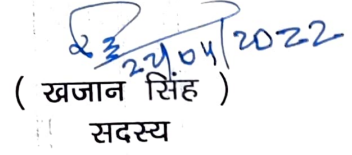 22/04/2022
( खजान सिंह )
सदस्य